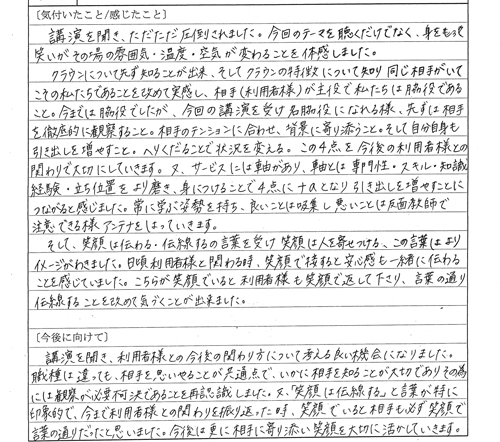 [気付いたこと/感じたこと]
講演を聞き、ただただ圧倒されました。今回のテーマを聴くだけでなく、身をもって
笑いがその場の雰囲気・温度・空気が変わることを体感しました。
クラウンについて先ず知ることが出来、そしてクラウンの特徴について知り 同じ相手がいて
この私たちであることを改めて実感し、相手(利用者様)が主役で私たちは脇役である
こと。今までは脇役でしたが、今回の講演を受け名脇役になれる様、先ずは相手
を徹底的に観察すること。相手のテンションに合わせ、背景に寄り添うこと。そして自分自身も
引き出しを増やすこと。へりくだることで状況を変える。この4点を今後の利用者様との
関わりで大切にしていきます。又、サービスには軸があり、軸とは専門性・スキル・知識
経験・立ち位置をより磨き、身につけることで4点に+αとなり引き出しを増やすことに
つながると感じました。常に学ぶ姿勢を持ち、良いことは吸集し悪いことは反面教師で
注意できる様アンテナをはっていきます。
そして、笑顔は伝わる・伝線するの言葉を受け 笑顔は人を寄せつける、この言葉はより
イメージがわきました。日頃利用者様と関わる時、笑顔で接すると安心感も一緒に伝わる
ことを感じていました。こちらが笑顔でいると利用者様も笑顔で返して下さり、言葉の通り
伝線することを改めて気づくことが出来ました。
[今後に向けて]
講演を聞き、利用者様との今後の関わり方について考える良い機会になりました。
職種は違っても、相手を思いやることが共通点で、いかに相手を知ることが大切でありその為
には観察が必要不可決であることを再認識しました。又、「笑顔は伝線する」と言葉が特に
印象的で、今まで利用者様との関わりを振り返った時、笑顔でいると相手も必ず笑顔で
言葉の通りだったと思いました。今後は更に相手に寄り添い笑顔を大切に活かしていきます。